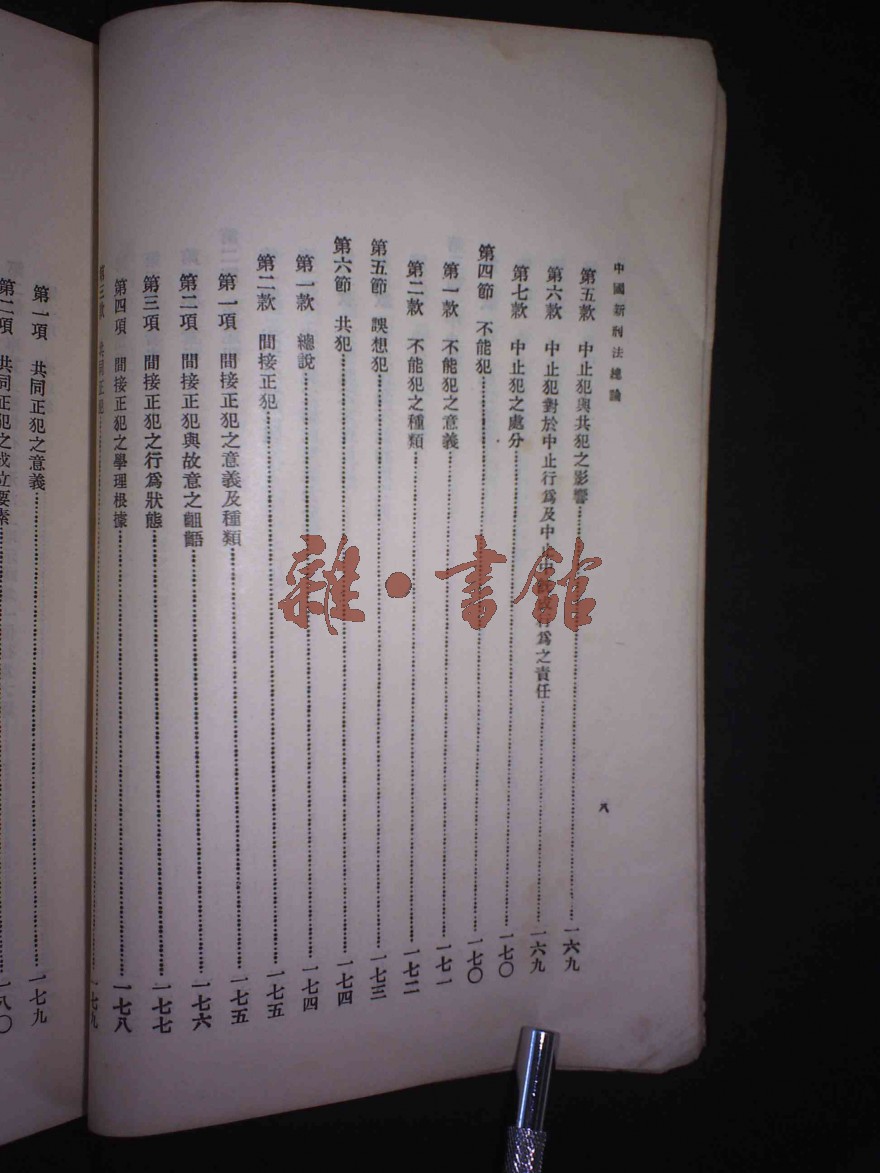 中國新刑法總論
第五款 中止犯與共犯之影響 一六九
第六款 中止犯對於中止行爲及中止 行爲之責任 一六九
第七款 中止犯之處分 一七〇
第四節 不能犯 一七〇
第一款 不能犯之意義 一七一
第二款 不能犯之種類 一七二
第五節 誤想犯 一七三
第六節 共犯 一七四
第一款 總說 一七四
第二款 間接正犯 一七五
第一項 間接正犯之意義及種類 一七五
第二項 間接正犯與故意之齟齬 一七六
第三項 間接正犯之行爲狀態 一七七
第四項 間接正犯之學理根據 一七八
第三款 共同正犯 一七九
八
第一項 共同正犯之意義 一七九
第二項 共同正犯之成立要素 一八〇
雜·書館